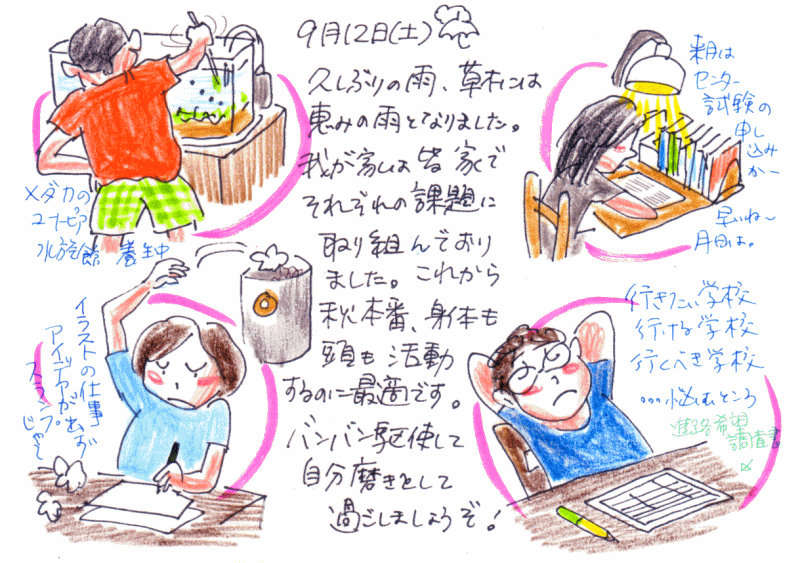 9月12日(土)
久しぶりの雨、草木には
恵みの雨となりました。
我が家は皆家で
それぞれの課題に
取り組んでおり
ました。これから
秋本番、身体も
頭も活動
するのに最適です。
バンバン駆使して
自分磨きとして
過ごしましょうぞ!
メダカの
ユートピア
水族館 養生中
来月は
センター
試験の
申し
込みか〜
早いね〜
月日は。
イラストの仕事
アイディアが出ず
スランプ
じゃ〜
行きたい学校
行ける学校
行くべき学校
…悩むところ
進路希望
調査書